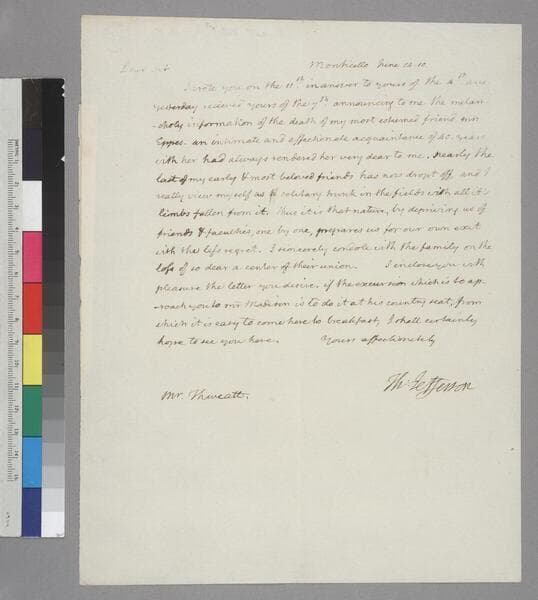 Dear Sir Monticello June 12. 10.
I wrote you on the 11th in answer to yours of the 4th and
yesterday recieved yours of the 7th announcing to me the melan-
choly information of the death of my most esteemed friend mrs
Eppes. an intimate and affectionate acquaintance of 40. years
with her had always rendered her very dear to me. nearly the
last of my early & most beloved friends has now dropt off, and I
really view myself as a solitary trunk in the fields with all it's
limbs fallen from it. thus it is that nature, by depriving us of
friends & faculties, one by one, prepares us for our own exit
with the less regret. I sincerely condole with the family on the
loss of so dear a center of their union. I inclose you with
pleasure the letter you desire. if the excursion which is to ap-
-proach you to mr Madison is to do it at his country seat, from
which it is easy to come here to breakfast, I shall certainly
hope to see you here. Yours affectionately
Th: Jefferson
Mr. Thweatt.